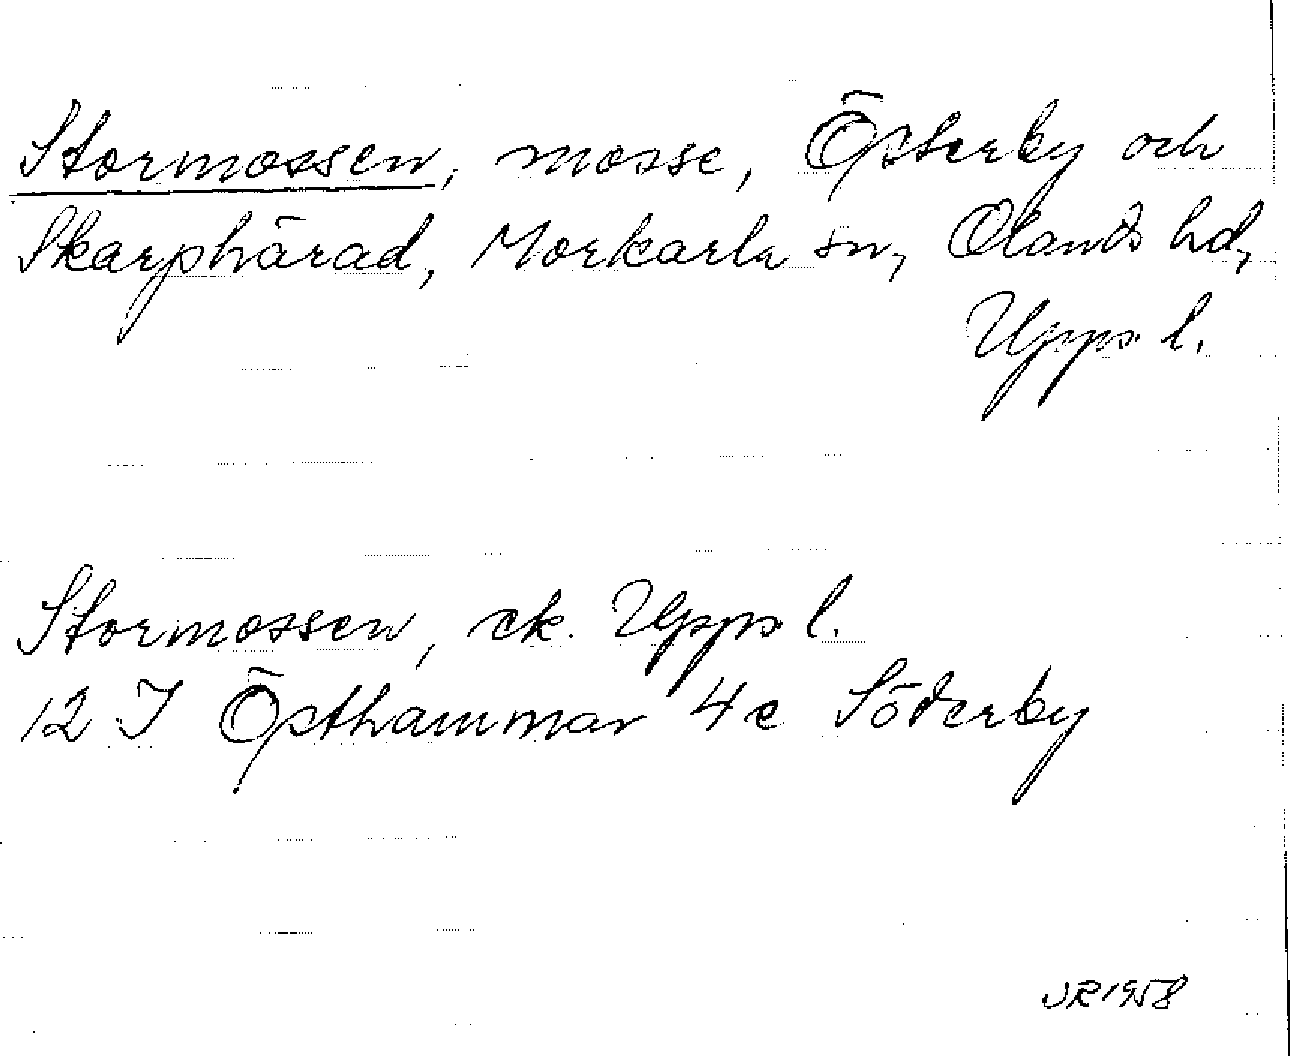 Stormossen, mosse, Österby och
Skarphärad, Morkarla sn, Olands hd,
Upps l.
Stormossen, ek. Upps l.
12 I Östhammar 4 e Söderby
JR 1958